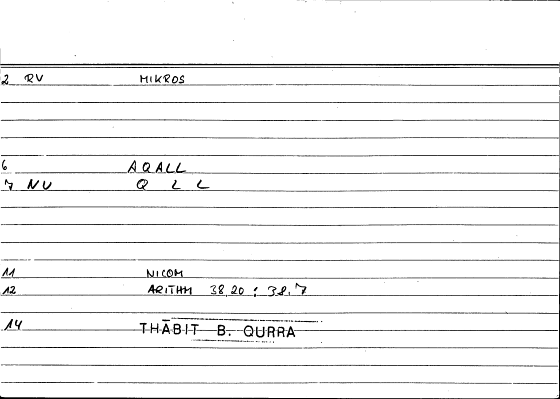 2 RV MIKROS
6 AQALL
7 NU Q L L
11 NICOM
12 ARITHM 38,20 : 38.7
14 THĀBIT B. QURRA